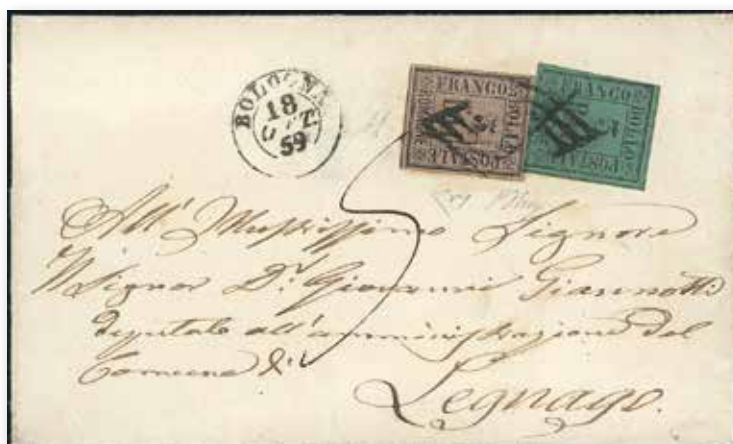 BOLOGNA
18
OTT.
59
FRANCO
BOLLO
POSTALE
ROMAGNE
FRANCO
BOLLO
POSTALE
All' Illustrissimo Signore
Il Signor Dr. Giovanni Giannotti
Deputato all'amministrazione del
Comune di
Legnago.